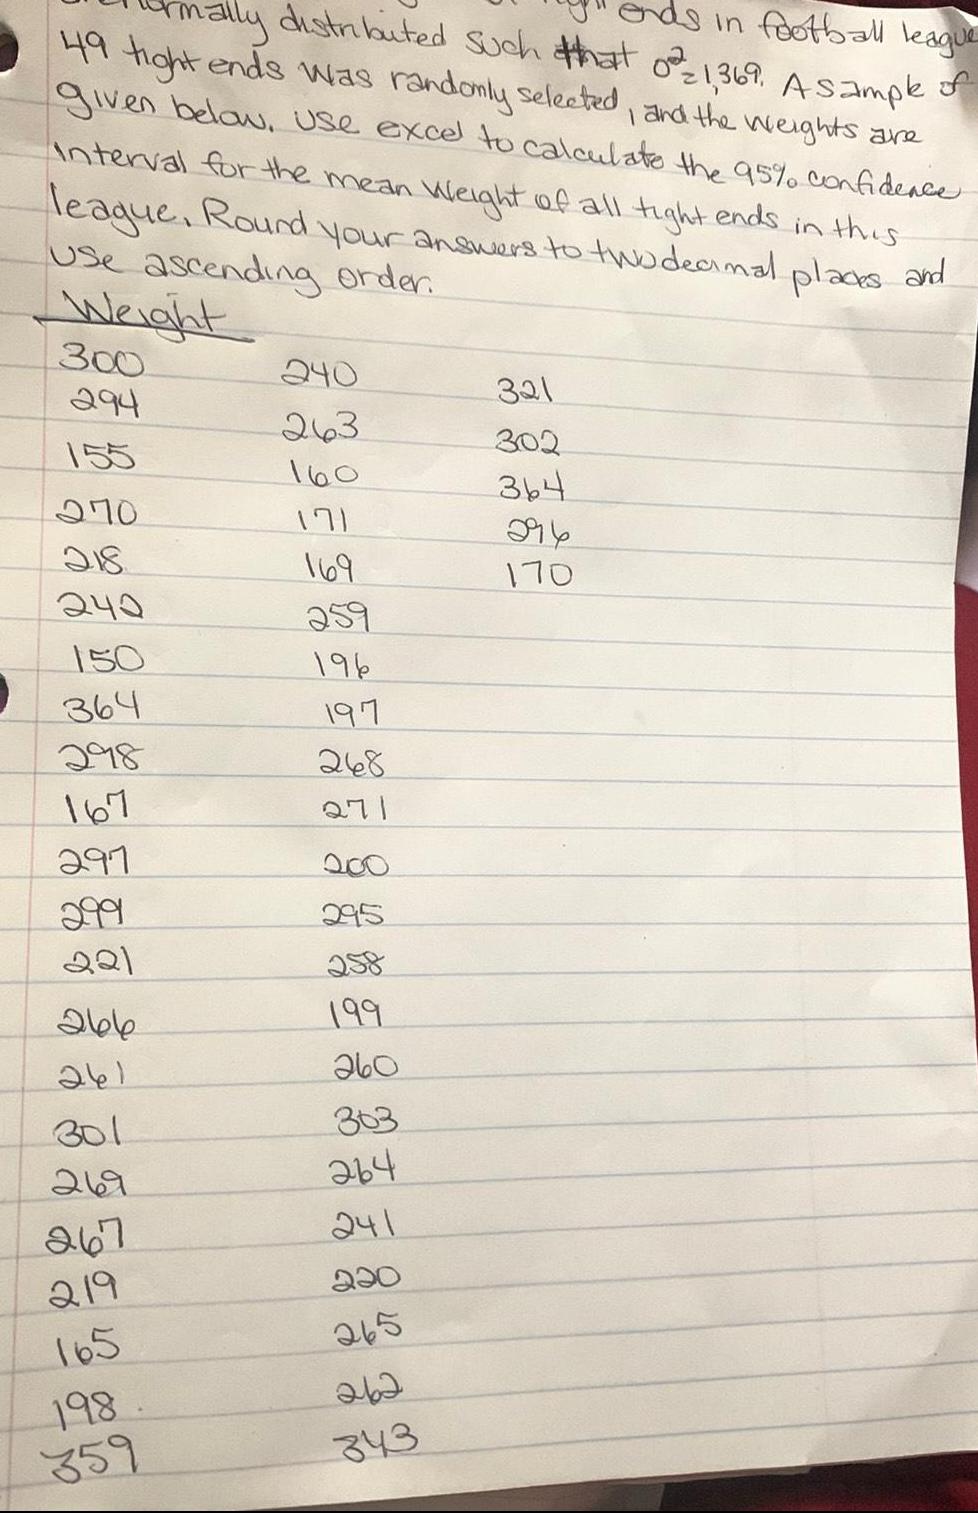 normally distributed such that σ²=1,369. A sample of
ends in football league
49 tight ends was randomly selected, and the weights are
given below. Use excel to calculate the 95% confidence
interval for the mean weight of all tight ends in this
league. Round your answers to two decimal places and
use ascending order.
Weight
300 240 321
294 263 302
155 160 364
270 171 296
218 169 170
242 259
150 196
364 197
298 268
167 271
297 200
299 295
221 258
266 199
261 260
301 303
269 264
267 241
219 220
165 265
198 262
359 343